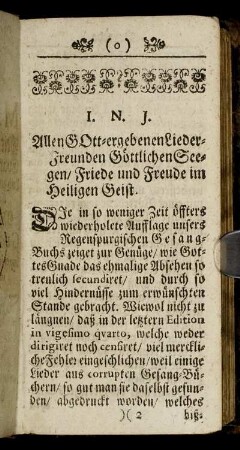 (o)
I. N. J.
Allen GOtt-ergebenen Lieder-
Freunden Göttlichen See-
gen / Friede und Freude im
Heiligen Geist.
DIe in so weniger Zeit öffters
wiederholete Aufflage unsers
Regenspurgischen Gesang-
Buchs zeiget zur Genüge / wie Got-
tes Gnade das ehmalige Absehen so
treulich secundiret / und durch so
viel Hindernüsse zum erwünschten
Stande gebracht. Wiewol nicht zu
längnen / daß in der letztern Edition
in vigesimo qvarto, welche weder
dirigiret noch censiret / viel merckli-
che Fehler eingeschlichen / weil einige
Lieder aus corrupten Gesang-Bü-
chern / so gut man sie daselbst gefun-
den / abgedruckt worden / welches
)( 2 biß-